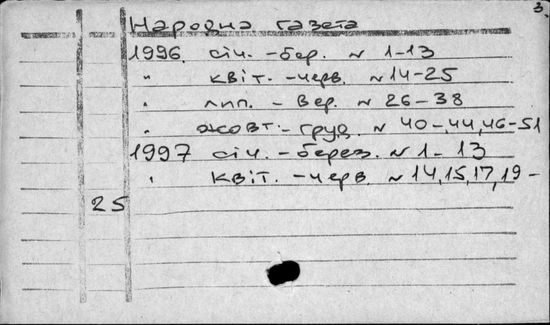 3.
Народна газета
1996. січ. - бер. № 1-13
" квіт. - черв. № 14-25
" лип. - вер. № 26-38
" жовт. - груд. № 40-44,46-51
1997 січ. - берез. № 1-13
" квіт. - черв. № 14,15,17,19 -
25